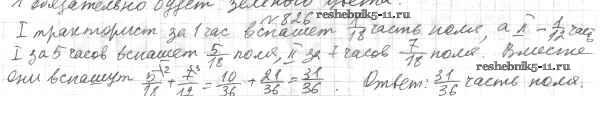 обязательно будет зелёного цвета.
№826 reshebnik5-11.ru
I тракторист за 1 час вспашет 1/18 часть поля, а II – 1/12 часть
I за 5 часов вспашет 5/18 поля, II за 7 часов 7/18 поля. Вместе
они вспашут 5/18 + 7/12 = 10/36 + 21/36 = 31/36. Ответ: 31/36 часть поля.
www.reshebnik5-11.ru